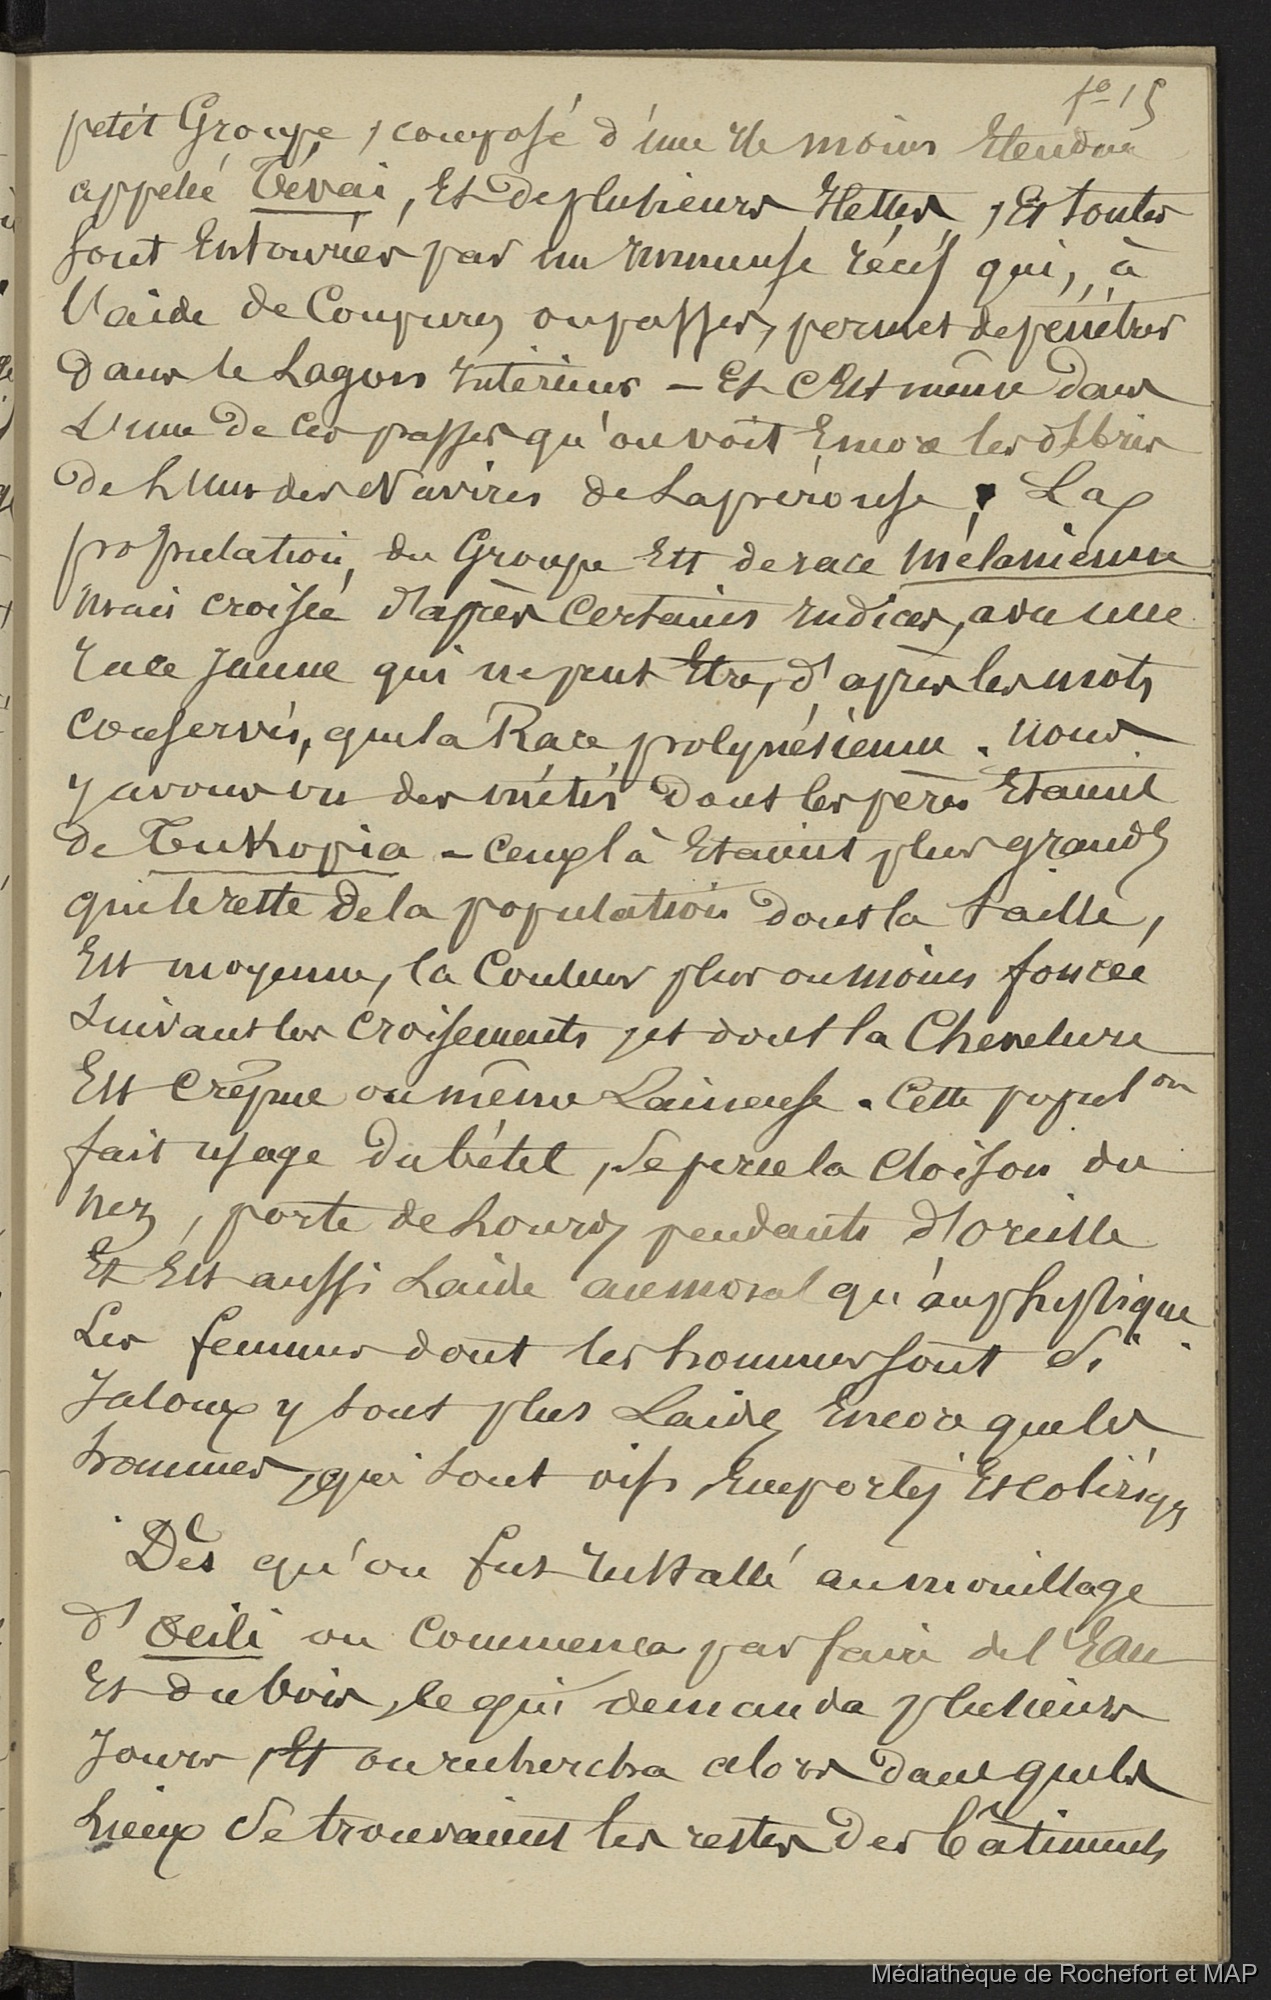 fo 15
petit Groupe, composé d'une Ile moins Etendue
appelée Tévai, Et de plusieurs Ilettes, Et toutes
sont Entourées par un Immense récif qui, à
l'aide de Coupures ou passes, permet de pénétrer
dans le Lagon Intérieur - Et c'Est même dans
L'une de ces passes qu'on voit Encore les débris
de L'un des Navires de Lapérouse. La
population, du Groupe Est de race mélanienne
mais croisée d'après Certains Indices, avec une
race Jaune qui ne peut Etre, d'après les mots
conservés, que la Race polynésienne. nous
y avons vu des métis dont les pères Etaient
de Tukopia - ceux là Etaient plus grands
que le reste de la population dont la taille,
Est moyenne, la Couleur plus ou moins foncée
suivant les Croisements, et dont la Chevelure
Est Crépue ou même Laineuse. Cette popul on
fait usage du bétel, se perce la Cloison du
nez, porte de Lourds pendants d'oreille
Et Est aussi Laide au moral qu'au physique
Les femmes dont les hommes sont si
Jaloux y sont plus Laides Encore que les
hommes, qui sont vifs, Emportés Et colériques
Dès qu'on fut Installé au mouillage
d'Ocili on commença par faire de l'Eau
Et du bois, ce qui demanda plusieurs
Jours, Et on rechercha alors dans quels
Lieux se trouvaient les restes des bâtiments
Médiathèque de Rochefort et MAP